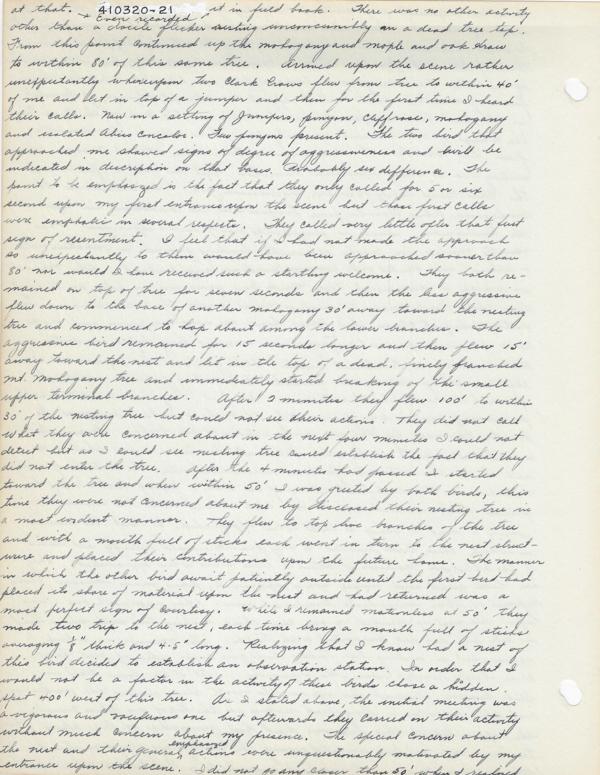 at that. 410320-21 at in field book. There was no other activity
& even recorded
other than a docile flicker resting unconcernibly on a dead tree top.
From this point continued up the mahogany and maple and oak draw
to within 80' of this same tree. Arrived upon the scene rather
unexpectantly whereupon two Clark Crows flew from tree to within 40'
of me and lit in top of a juniper and then for the first time I heard
their calls. Now in a setting of Junipers, pinyon, cliff rose, mahogany
and isolated Abies concolor. Few pinyons present. The two bird that
approached me showed signs of degree of aggressiveness and will be
indicated in description on that basis. Probably sex difference. The
point to be emphasized is the fact that they only called for 5 or six
second upon my first entrance upon the scene but those first calls
were emphatic in several respects. They called very little after that first
sign of resentment. I feel that if I had not made the approach
so unexpectantly to them would have been approached sooner than
80' nor would I have received such a startling welcome. They both re-
mained on top of tree for seven seconds and then the less aggressive
flew down to the base of another mahogany 30' away toward the nesting
tree and commenced to hop about among the lower branches. The
aggressive bird remained for 15 seconds longer and then flew 15'
away toward the nest and lit in the top of a dead, finely branched
mt. mahogany tree and immediately started breaking of the small
upper terminal branches. After 2 minutes they flew 100' to within
30' of the nesting tree but could not see their actions. They did not call
what they were concerned about in the next four minutes I could not
detect but as I could see nesting tree could establish the fact that they
did not enter the tree. After the 4 minutes had passed I started
toward the tree and when within 50' I was greeted by both birds, this
time they were not concerned about me by disclosed their nesting tree in
a most evident manner. They flew to top two branches of the tree
and with a mouth full of sticks each went in turn to the nest struct-
ure and placed their contributions upon the future home. The manner
in which the other bird await patiently outside until the first bird had
placed its share of material upon the nest and had returned was a
most perfect sign of courtesy. While I remained motionless at 50' they
made two trip to the nest, each time bring a mouth full of sticks
averaging 1/8" thick and 4-5" long. Realizing that I know had a nest of
this bird decided to establish an observation station. In order that I
would not be a factor in the activity of these birds chose a hidden
spot 400' west of this tree. As I stated above, the initial meeting was
a vigorous and vociferous one but afterwards they carried on their activity
without much concern about my presence. The special concern about
the nest and their general emphasized actions were unquestionably motivated by my
entrance upon the scene. I did not go any closer than 50' when I